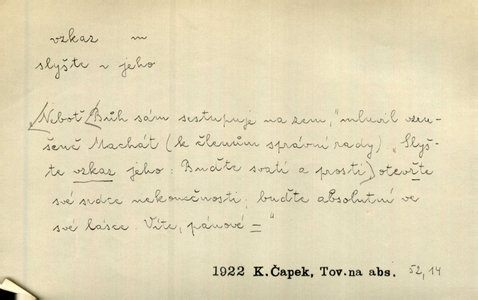 vzkaz m
slyšte v jeho
„Neboť Bůh sám sestupuje na zem," mluvil vzru-
šeně Machát (k členům správní rady) „Slyš-
te vzkaz jeho: Buďte svatí a prostí; otevřte
své srdce nekonečnosti; buďte absolutní ve
své lásce. Víte, pánové –"
1922 K. Čapek, Tov. na abs. 52, 14